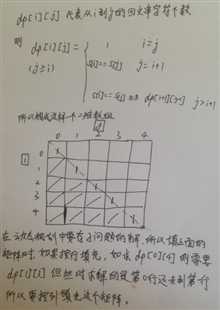 dp[i][j] 代表从i到j的回文串字符个数
则 dp[i][j] =
1 i=j
(j≥i) s[i]==s[j] j=i+1
s[i]==s[j] && dp[i+1][j-1] j>i+1
所以构成这样一个二维数组
j
0 1 2 3 4
i
0
1
2
3
4
在动态规划中要存子问题的解,所以填上面的
矩阵时,如果按行填充,如求dp[0][4]则需要
dp[1][3]但此时求解的是第0行还未到第一行
所以要按列填充这个矩阵。